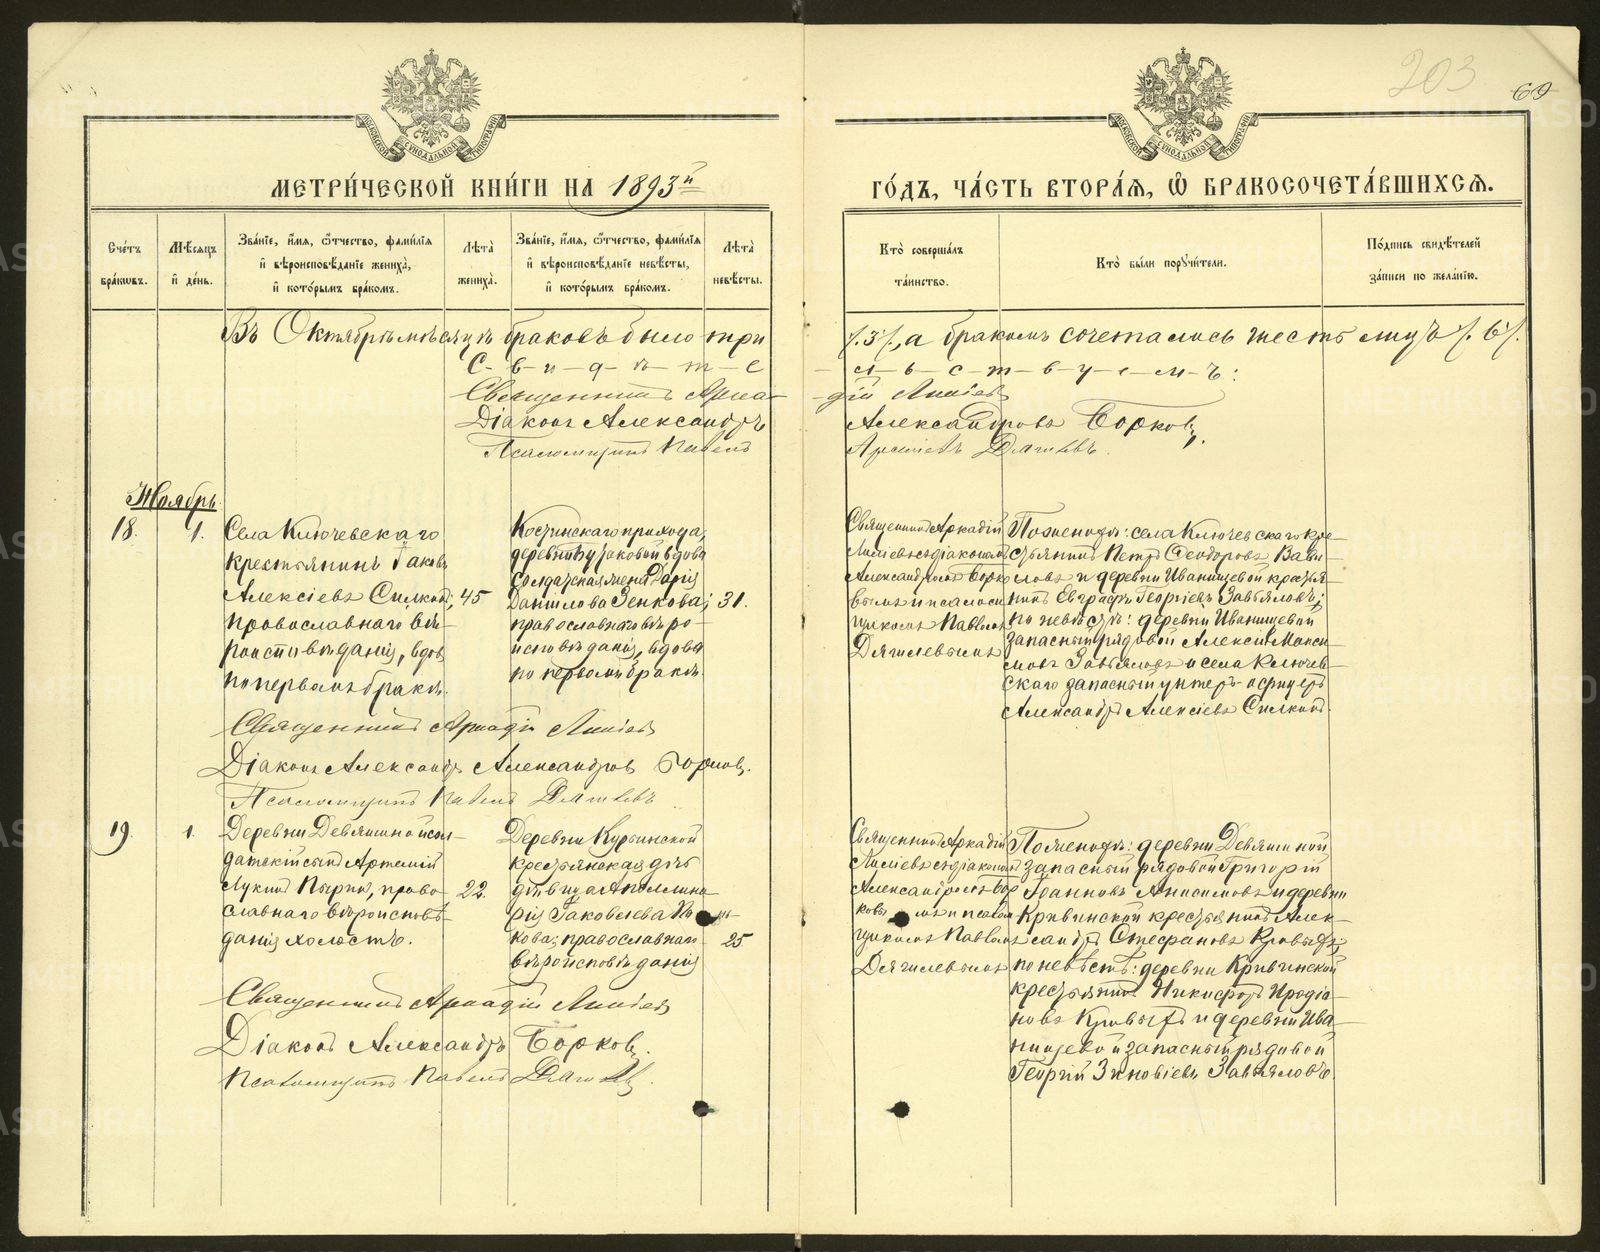 203
69
МОСКОВСКОЙ СѴНОДАЛЬНОЙ ТИПОГРАФІИ
МОСКОВСКОЙ СѴНОДАЛЬНОЙ ТИПОГРАФІИ
МЕТРИ́ЧЕСКОЙ КНИ́ГИ НА 1893й
ГО́ДЪ, ЧА́СТЬ ВТОРА́Я, Ѿ БРАКОСОЧЕТА́ВШИХСЯ.
Сче́тъ бра́кѡвъ.
Мѣ́сяцъ и҆ де́нь.
Зва́нїе, и҆́мя, ѻ҆́тчество, фами́лїя и҆ вѣроисповѣ́данїе жениха̀, и҆ кото́рымъ бра́комъ.
Лѣ́та жениха̀.
Зва́нїе, и҆́мя, ѻ҆́тчество, фами́лїя и҆ вѣроисповѣ́данїе невѣ́сты, и҆ кото́рымъ бра́комъ.
Лѣ́та невѣ́сты.
Кто̀ соверша́лъ та́инство.
Кто̀ бы́ли порꙋчи́тели.
По́дпись свидѣ́телей за́писи по жела́нїю.
Въ Октябрѣ мѣсяцѣ браковъ было три /.3/., а бракомъ сочеталось шесть лицъ /.6/.
С-в-и-д-ѣ-т-е-л-ь-с-т-в-у-е-м-ъ:
Священникъ Аркадій
Діаконъ Александръ Александровъ Борковъ.
Псаломщикъ Павелъ Дягилевъ.
Ноябрь
18. 1.
Села Ключевскаго
крестьянинъ Іаковъ
Алексіевъ Силкинъ, 45
православнаго вѣ-
роисповѣданія, вдовъ
по первомъ бракѣ.
прихода,
вдова
солдатская жена Дарія
Даніилова Зенкова; 31.
православнаго вѣро-
исповѣданія, вдова
по первомъ бракѣ.
Священникъ Аркадій
съ діакономъ
Александромъ Борко-
вымъ и псалом-
щикомъ Павломъ
Дягилевымъ
По женихѣ: села Ключевскаго кре-
стьянинъ Петръ Ѳеодоровъ Вави-
ловъ и деревни Иванищевой крестья-
нинъ Евграфъ Георгіевъ Завьяловъ;
по невѣстѣ: деревни Иванищевой
запасный рядовой Алексій Макси-
мовъ Завьяловъ и села Ключев-
скаго запасный унтеръ-офицеръ
Александръ Алексіевъ Силкинъ.
Священникъ Аркадій
Діаконъ Александръ Александровъ Борковъ.
Псаломщикъ Павелъ Дягилевъ.
19. 1.
Деревни Девяшиной сол-
датскій сынъ Артемій
Лукинъ Пырин, право- 22.
славнаго вѣроисповѣ-
данія холостъ.
Деревни Курьинской
крестьянская дочь
дѣвица Аполлина-
рія Іаковлева
кова; православнаго 25
вѣроисповѣданія
Священникъ Аркадій
съ діакономъ
Александромъ Бор-
ковымъ и псалом-
щикомъ Павломъ
Дягилевымъ
По женихѣ: деревни Девяшиной
запасный рядовой Григорій
Іоанновъ Анисимовъ и деревни
Кривинской крестьянинъ Алек-
сандръ Стефановъ Кривыхъ;
по невѣстѣ: деревни Кривинской
крестьянинъ Никифоръ Иродіо-
новъ Кривыхъ и деревни Ива-
нищевой запасный рядовой
Георгій Зиновіевъ Завьяловъ.
Священникъ Аркадій
Діаконъ Александръ Борковъ.
Псаломщикъ Павелъ Дягилевъ.
METRIKI.GASO-URAL.RU